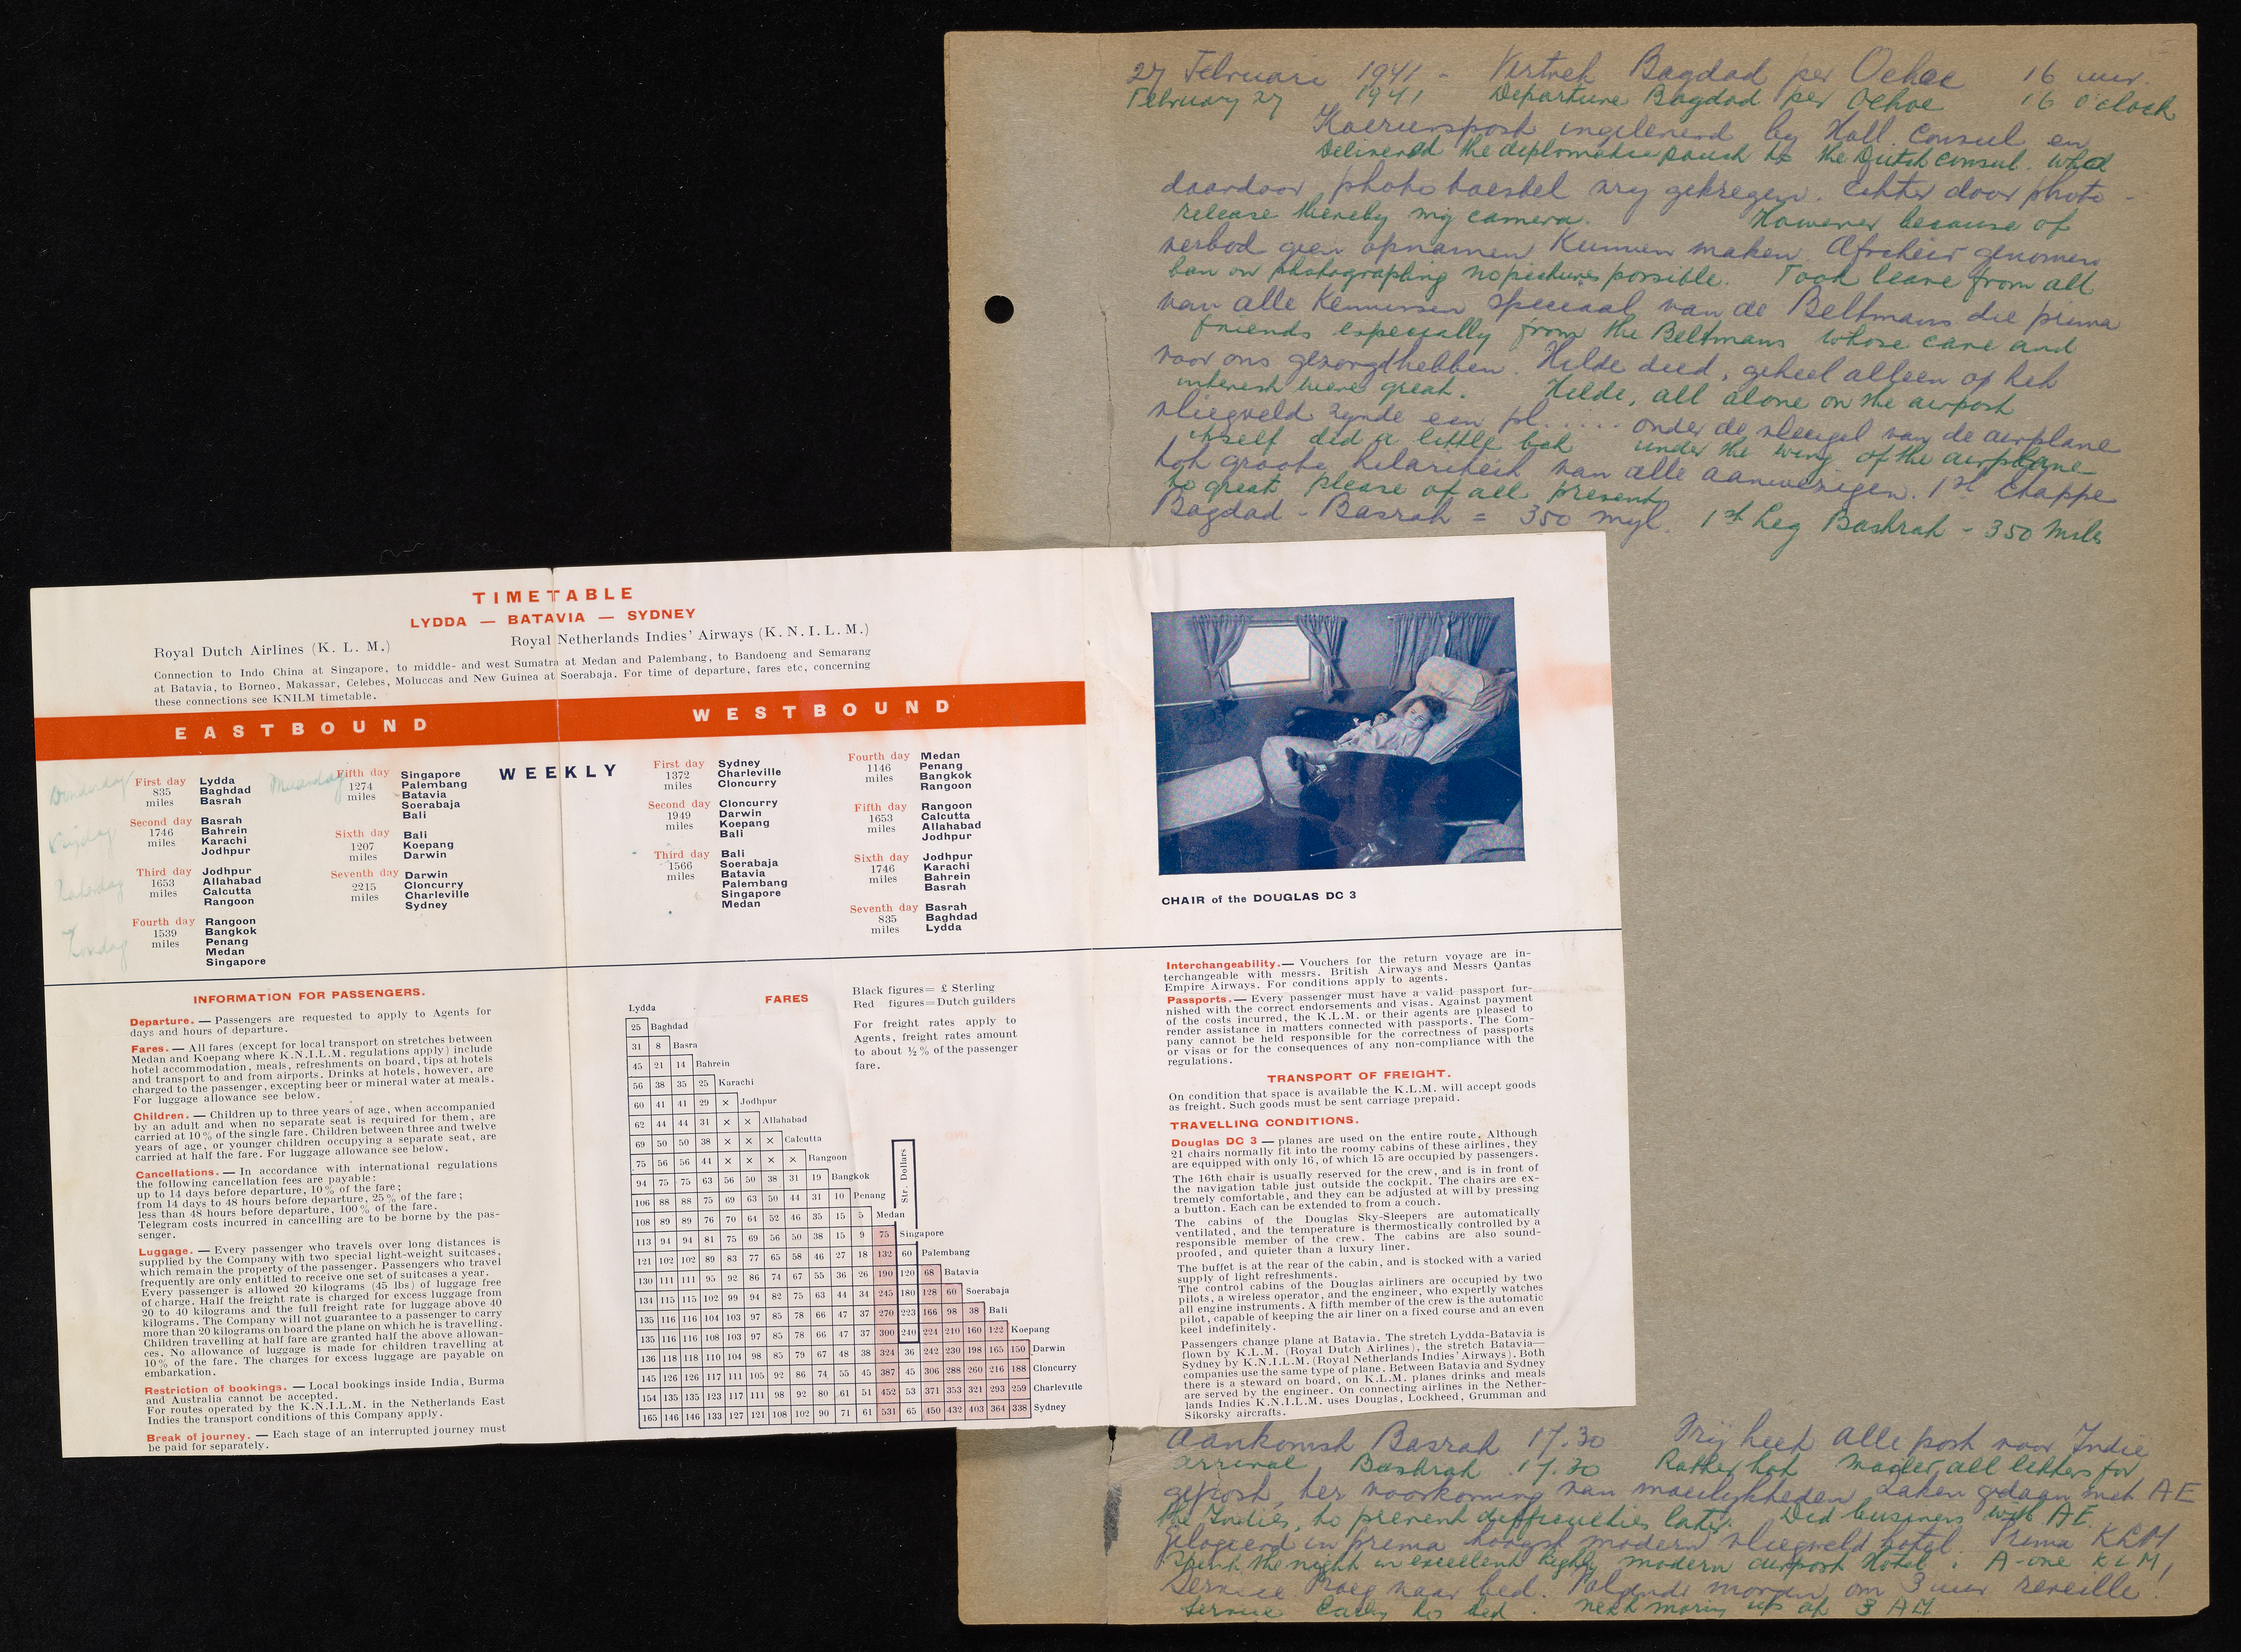 27 Februari 1941 - Vertrek Bagdad per Oehoe 16 uur.
February 27 1941 Departure Bagdad per Oehoe 16 o'clock
Koerierspost ingeleverd by Holl. Consul en
Delivered the diplomatic pouch to the Dutch consul. Whd
daardoor photo toestel vry gekregen. Echter door photo -
release thereby my camera. However because of
verbod geen opnamen kunnen maken. Afscheid genomen
ban on photographing no pictures possible. Took leave from all
van alle kennissen speciaal van de Beltmans die prima
friends especially from the Beltmans whose care and
voor ons gezorgd hebben. Hilde deed, geheel alleen op het
interest were great. Hilde, all alone on the airport
vliegveld zynde een pl..... onder de vleugel van de airplane
itself did a little bah under the wing of the airplane
tot groote hilariteit van alle aanwezigen. 1st Etappe
to great please of all present
Bagdad - Basrah = 350 myl. 1st Leg Bashrah - 350 Miles
TIMETABLE
LYDDA — BATAVIA — SYDNEY
Royal Dutch Airlines (K. L. M.) Royal Netherlands Indies' Airways (K. N. I. L. M.)
Connection to Indo China at Singapore, to middle- and west Sumatra at Medan and Palembang, to Bandoeng and Semarang
at Batavia, to Borneo, Makassar, Celebes, Moluccas and New Guinea at Soerabaja. For time of departure, fares etc, concerning
these connections see KNILM timetable.
EASTBOUND
WESTBOUND
WEEKLY
Donderdag
First day
835
miles
Lydda
Baghdad
Basrah
Vrijdag
Second day
1746
miles
Basrah
Bahrein
Karachi
Jodhpur
Zaterdag
Third day
1653
miles
Jodhpur
Allahabad
Calcutta
Rangoon
Zondag
Fourth day
1539
miles
Rangoon
Bangkok
Penang
Medan
Singapore
Maandag
Fifth day
1274
miles
Singapore
Palembang
Batavia
Soerabaja
Bali
Sixth day
1207
miles
Bali
Koepang
Darwin
Seventh day
2215
miles
Darwin
Cloncurry
Charleville
Sydney
First day
1372
miles
Sydney
Charleville
Cloncurry
Second day
1949
miles
Cloncurry
Darwin
Koepang
Bali
Third day
1566
miles
Bali
Soerabaja
Batavia
Palembang
Singapore
Medan
Fourth day
1146
miles
Medan
Penang
Bangkok
Rangoon
Fifth day
1653
miles
Rangoon
Calcutta
Allahabad
Jodhpur
Sixth day
1746
miles
Jodhpur
Karachi
Bahrein
Basrah
Seventh day
835
miles
Basrah
Baghdad
Lydda
CHAIR of the DOUGLAS DC 3
INFORMATION FOR PASSENGERS.
Departure. — Passengers are requested to apply to Agents for
days and hours of departure.
Fares. — All fares (except for local transport on stretches between
Medan and Koepang where K.N.I.L.M. regulations apply) include
hotel accommodation, meals, refreshments on board, tips at hotels
and transport to and from airports. Drinks at hotels, however, are
charged to the passenger, excepting beer or mineral water at meals.
For luggage allowance see below.
Children. — Children up to three years of age, when accompanied
by an adult and when no separate seat is required for them, are
carried at 10 % of the single fare. Children between three and twelve
years of age, or younger children occupying a separate seat, are
carried at half the fare. For luggage allowance see below.
Cancellations. — In accordance with international regulations
the following cancellation fees are payable:
up to 14 days before departure, 10 % of the fare;
from 14 days to 48 hours before departure, 25 % of the fare;
less than 48 hours before departure, 100 % of the fare.
Telegram costs incurred in cancelling are to be borne by the pas-
senger.
Luggage. — Every passenger who travels over long distances is
supplied by the Company with two special light-weight suitcases,
which remain the property of the passenger. Passengers who travel
frequently are only entitled to receive one set of suitcases a year.
Every passenger is allowed 20 kilograms (45 lbs) of luggage free
of charge. Half the freight rate is charged for excess luggage from
20 to 40 kilograms and the full freight rate for luggage above 40
kilograms. The Company will not guarantee to a passenger to carry
more than 20 kilograms on board the plane on which he is travelling.
Children travelling at half fare are granted half the above allowan-
ces. No allowance of luggage is made for children travelling at
10 % of the fare. The charges for excess luggage are payable on
embarkation.
Restriction of bookings. — Local bookings inside India, Burma
and Australia cannot be accepted.
For routes operated by the K.N.I.L.M. in the Netherlands East
Indies the transport conditions of this Company apply.
Break of journey. — Each stage of an interrupted journey must
be paid for separately.
FARES
Black figures= £ Sterling
Red figures=Dutch guilders
For freight rates apply to
Agents, freight rates amount
to about ½ % of the passenger
fare.
Str. Dollars
Lydda
25 Baghdad
31 8 Basra
45 21 14 Bahrein
56 38 35 25 Karachi
60 41 41 29 × Jodhpur
62 44 44 31 × × Allahabad
69 50 50 38 × × × Calcutta
75 56 56 44 × × × × Rangoon
94 75 75 63 56 50 38 31 19 Bangkok
106 88 88 75 69 63 50 44 31 10 Penang
108 89 89 76 70 64 52 46 35 15 5 Medan
113 94 94 81 75 69 56 50 38 15 9 75 Singapore
121 102 102 89 83 77 65 58 46 27 18 132 60 Palembang
130 111 111 95 92 86 74 67 55 36 26 190 120 68 Batavia
134 115 115 102 99 94 82 75 63 44 34 245 180 128 60 Soerabaja
135 116 116 104 103 97 85 78 66 47 37 270 223 166 98 38 Bali
135 116 116 108 103 97 85 78 66 47 37 300 240 224 210 160 122 Koepang
136 118 118 110 104 98 85 79 67 48 38 324 36 242 230 198 165 150 Darwin
145 126 126 117 111 105 92 86 74 55 45 387 45 306 288 260 216 188 Cloncurry
154 135 135 123 117 111 98 92 80 61 51 452 53 371 353 321 293 259 Charleville
165 146 146 133 127 121 108 102 90 71 61 531 65 450 432 403 364 338 Sydney
Interchangeability. — Vouchers for the return voyage are in-
terchangeable with messrs. British Airways and Messrs Qantas
Empire Airways. For conditions apply to agents.
Passports. — Every passenger must have a valid passport fur-
nished with the correct endorsements and visas. Against payment
of the costs incurred, the K.L.M. or their agents are pleased to
render assistance in matters connected with passports. The Com-
pany cannot be held responsible for the correctness of passports
or visas or for the consequences of any non-compliance with the
regulations.
TRANSPORT OF FREIGHT.
On condition that space is available the K.L.M. will accept goods
as freight. Such goods must be sent carriage prepaid.
TRAVELLING CONDITIONS.
Douglas DC 3 — planes are used on the entire route. Although
21 chairs normally fit into the roomy cabins of these airlines, they
are equipped with only 16, of which 15 are occupied by passengers.
The 16th chair is usually reserved for the crew, and is in front of
the navigation table just outside the cockpit. The chairs are ex-
tremely comfortable, and they can be adjusted at will by pressing
a button. Each can be extended to from a couch.
The cabins of the Douglas Sky-Sleepers are automatically
ventilated, and the temperature is thermostically controlled by a
responsible member of the crew. The cabins are also sound-
proofed, and quieter than a luxury liner.
The buffet is at the rear of the cabin, and is stocked with a varied
supply of light refreshments.
The control cabins of the Douglas airliners are occupied by two
pilots, a wireless operator, and the engineer, who expertly watches
all engine instruments. A fifth member of the crew is the automatic
pilot, capable of keeping the air liner on a fixed course and an even
keel indefinitely.
Passengers change plane at Batavia. The stretch Lydda-Batavia is
flown by K.L.M. (Royal Dutch Airlines), the stretch Batavia—
Sydney by K.N.I.L.M. (Royal Netherlands Indies' Airways). Both
companies use the same type of plane. Between Batavia and Sydney
there is a steward on board, on K.L.M. planes drinks and meals
are served by the engineer. On connecting airlines in the Nether-
lands Indies K.N.I.L.M. uses Douglas, Lockheed, Grumman and
Sikorsky aircrafts.
Aankomst Basrah 17.30 Vrij heet alle post voor Indie
arrival Bashrah 17.30 Rather hot mailed all letters for
gepost, ter voorkoming van moeilykheden Zaken gedaan met AE
the Indies, to prevent difficulties later. Did business with AE.
Gelogeerd in prima hoogst modern vliegveld hotel. Prima KLM
Spent the night in excellent highly modern airport Hotel. A-one KLM,
Service Vroeg naar bed. Volgende morgen om 3 uur reveille.
Service Early to bed. next morning up at 3 AM